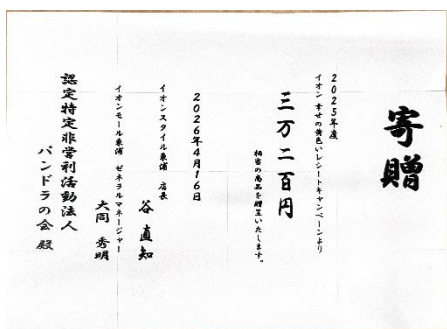 寄贈
2025年度
イオン 幸せの黄色いレシートキャンペーンより
三万二百円
相当の商品を贈呈いたします。
2026年4月16日
イオンスタイル東浦 店長
谷 直知
イオンモール東浦 ゼネラルマネージャー
大同 秀明
認定特定非営利活動法人
パンドラの会 殿